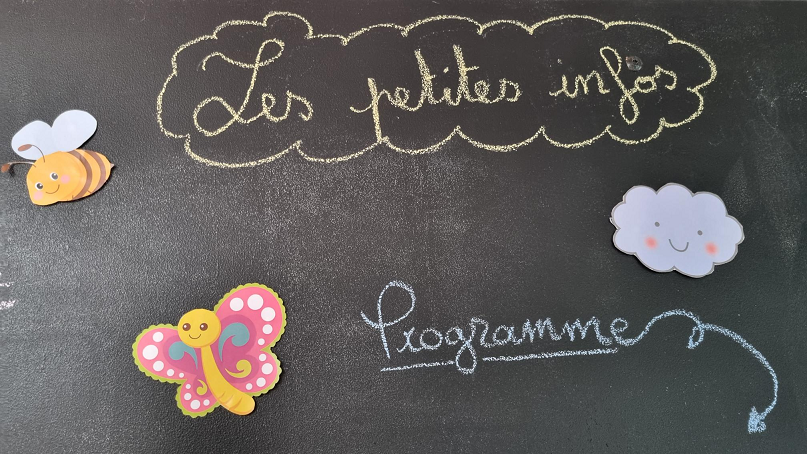 Les petites infos
Programme